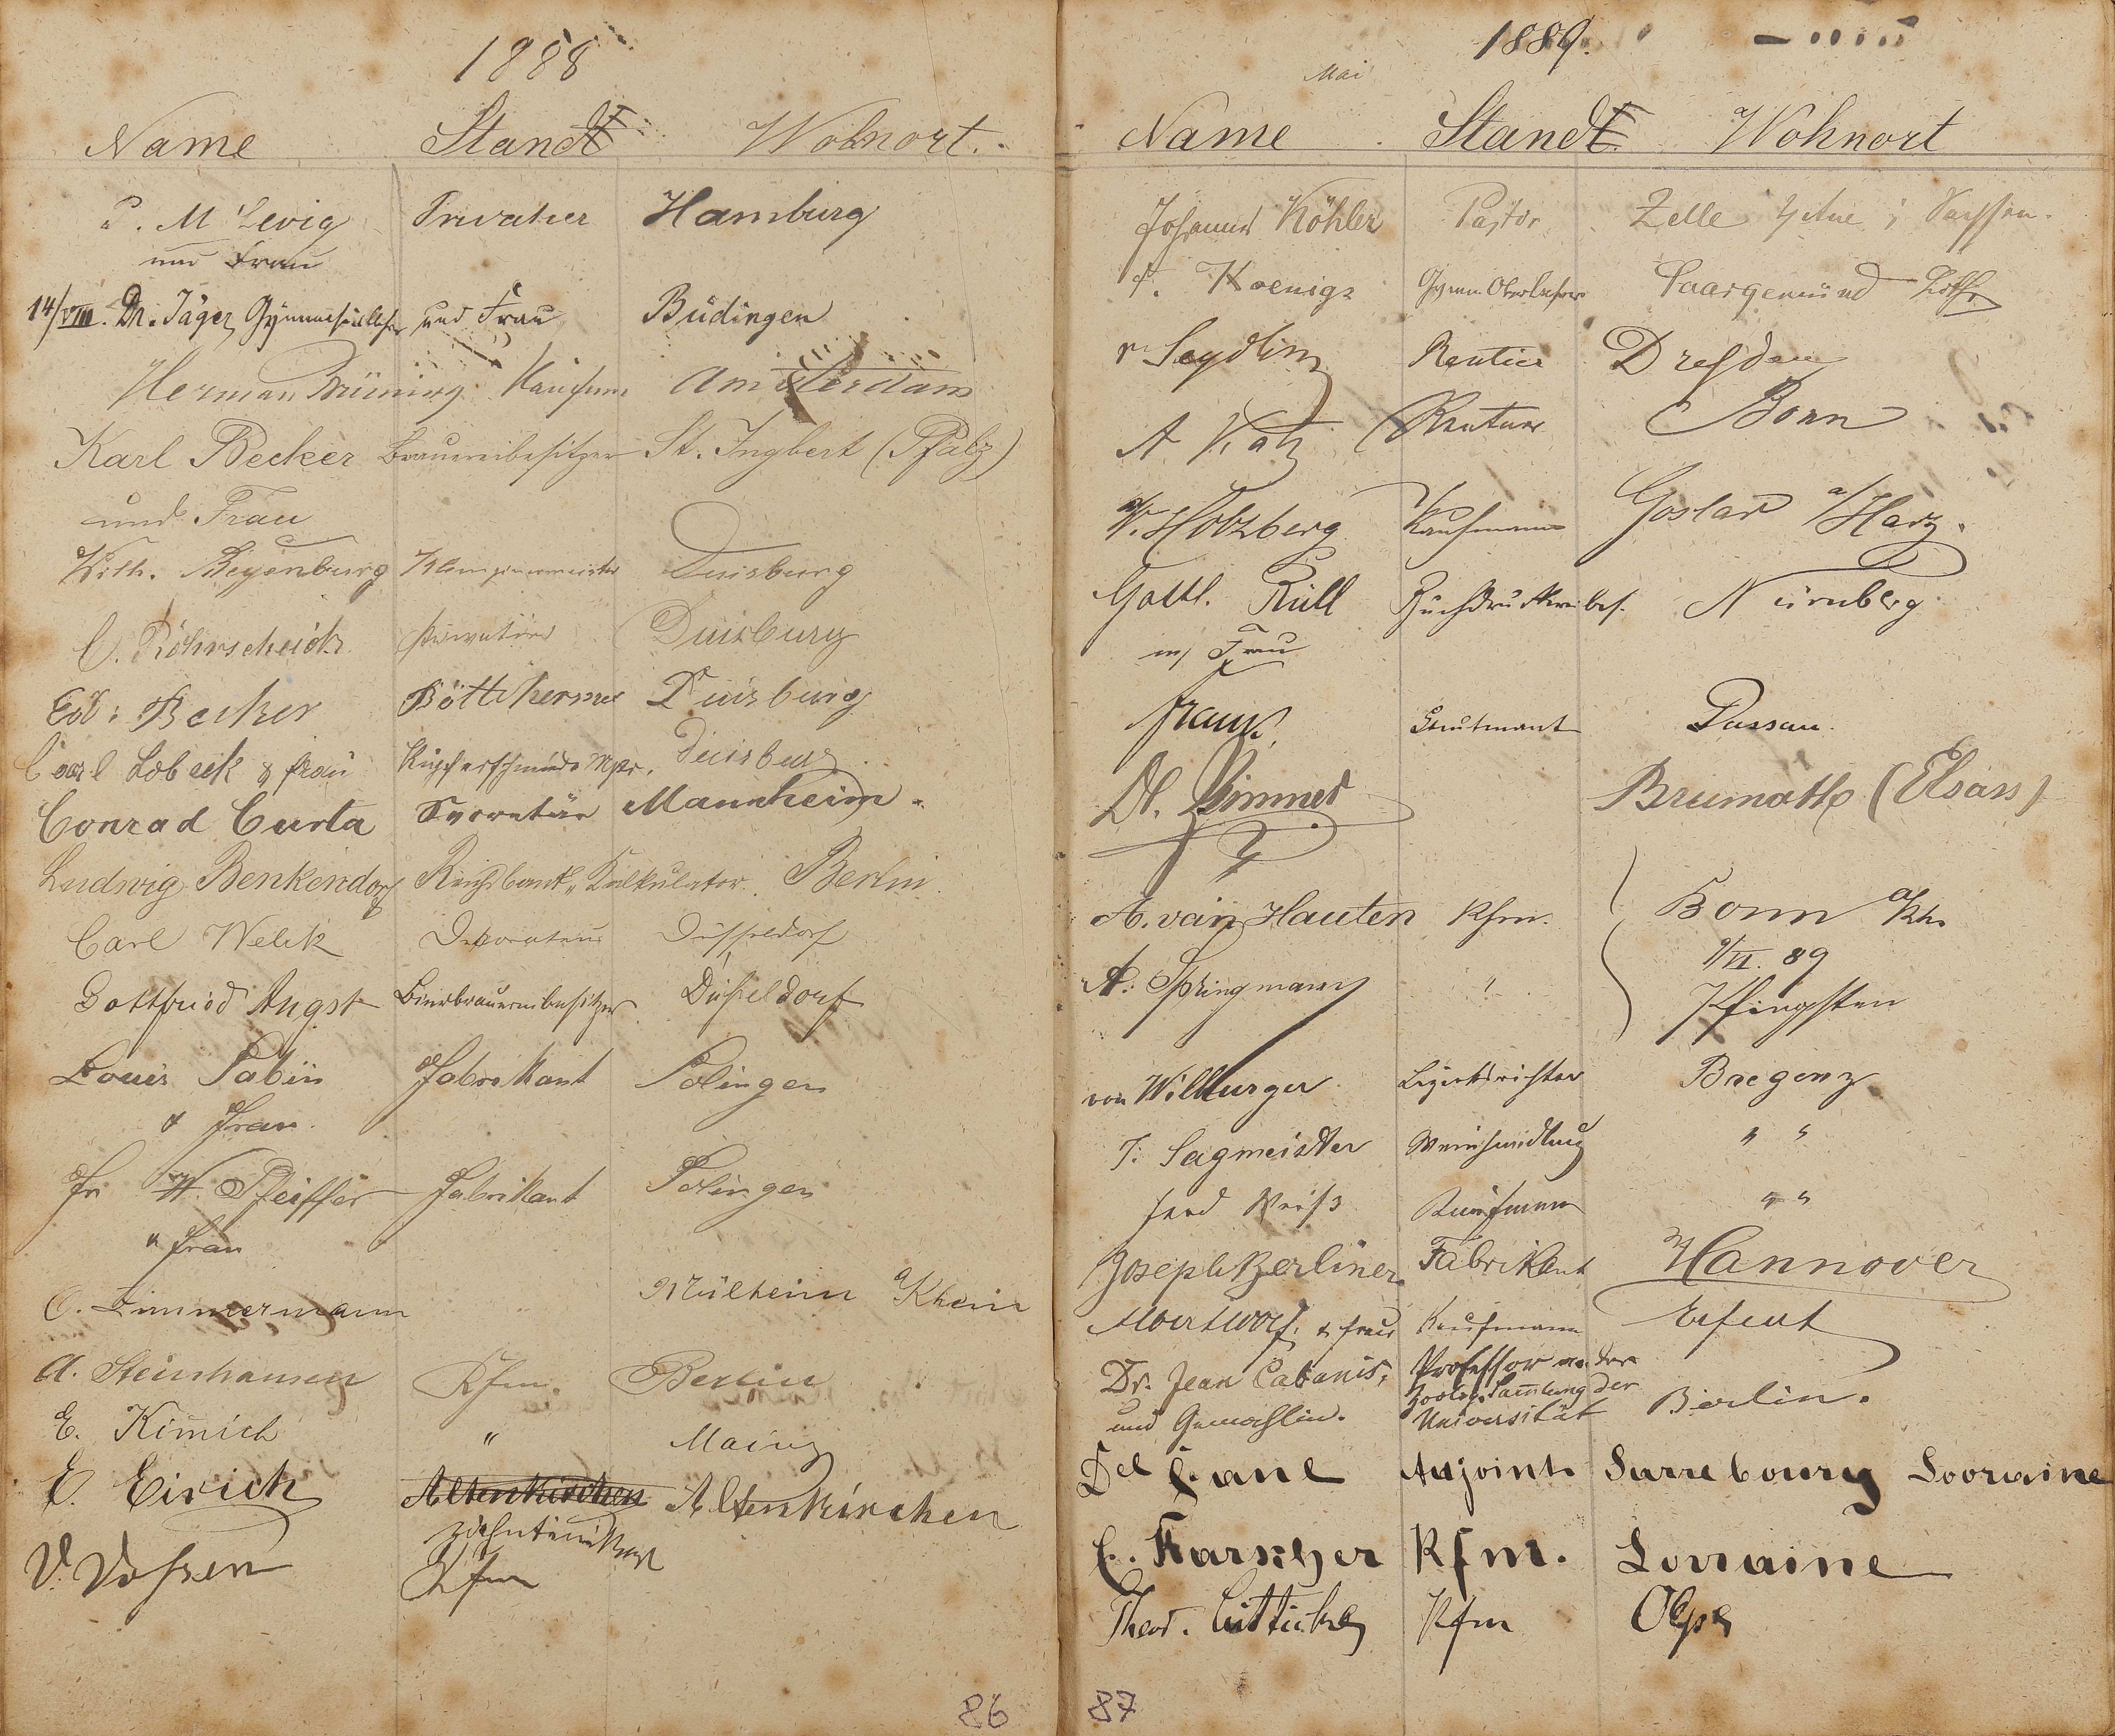 1888
Name Stand Wohnort.
P. M Levig Privatier Hamburg
und Frau
14/VIII. Dr. Jäger, Gymnasiallehrer und Frau Büdingen
Herman Brüning Kaufmann Amsterdam
Karl Becker Brauereibesitzer St. Ingbert (Pfalz)
und Frau
Wilh. Beyenburg Klempnermeister Duisburg
C. Röhrscheidt Privatier Duisburg
Ed. Becker Böttcherm Duisburg
Carl Lobeck & frau Kupferschmiede Mstr. Duisburg
Conrad Curta Secretär Mannheim.
Ludwig Benkendorf Reichsbank-Kalkulator Berlin.
Carl Welik Decorateur Düsseldorf
Gottfried Angst Bierbrauereibesitzer Düßeldorf
Louis Sabin Fabrikant Solingen
& frau.
Fr W. Pfeiffer Fabrikant Solingen
u frau
C. Zimmermann Mülheim a/Rhein
A. Steinhausen Kfm. Berlin
E. Kimich " Mainz
E. Eirich Altenkirchen Altenkirchen
V. Vossen Kfm
86
1889.
Mai
Name Stand Wohnort
Johannes Köhler Pastor Zelle b/Aue i Sachsen.
F. Koenigs Gymn. Oberlehrer Saargemünd Lothr.
v. Seydlitz Rentier Dresden
A Katz Rentner Bonn
W. Holzberg Kaufmann Goslar a/Harz.
Gottl. Rüll Buchdruckereibes. Nürnberg
m/ Frau
Franz, Leutnant Passau.
Dr. Zimmer Brumath (Elsass)
A. van Hauten Kfm. Bonn a/Rh.
9/VI. 89
A. Springmann " Pfingsten
von Wilburger Bezirksrichter Bregenz
J. Sagmeister Weinhandlung " "
Ferd Weiß Kaufmann " "
Joseph Berliner Fabrikant Hannover
& frau Kaufmann Erfurt
Dr. Jean Cabanis, Professor an der
zoolog. Sammlung der
und Gemahlin. Universität Berlin.
Del Adjoint Sarrebourg Lorraine
C. Karscher Kfm. Lorraine
Theod. Kfm Olpe
87